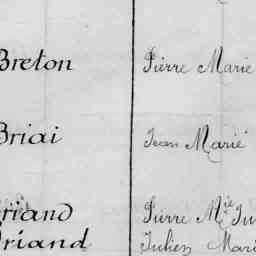 Breton Pierre Marie
Briai Jean Marie
Briand Pierre Mie Ju
Briand Julien Mari